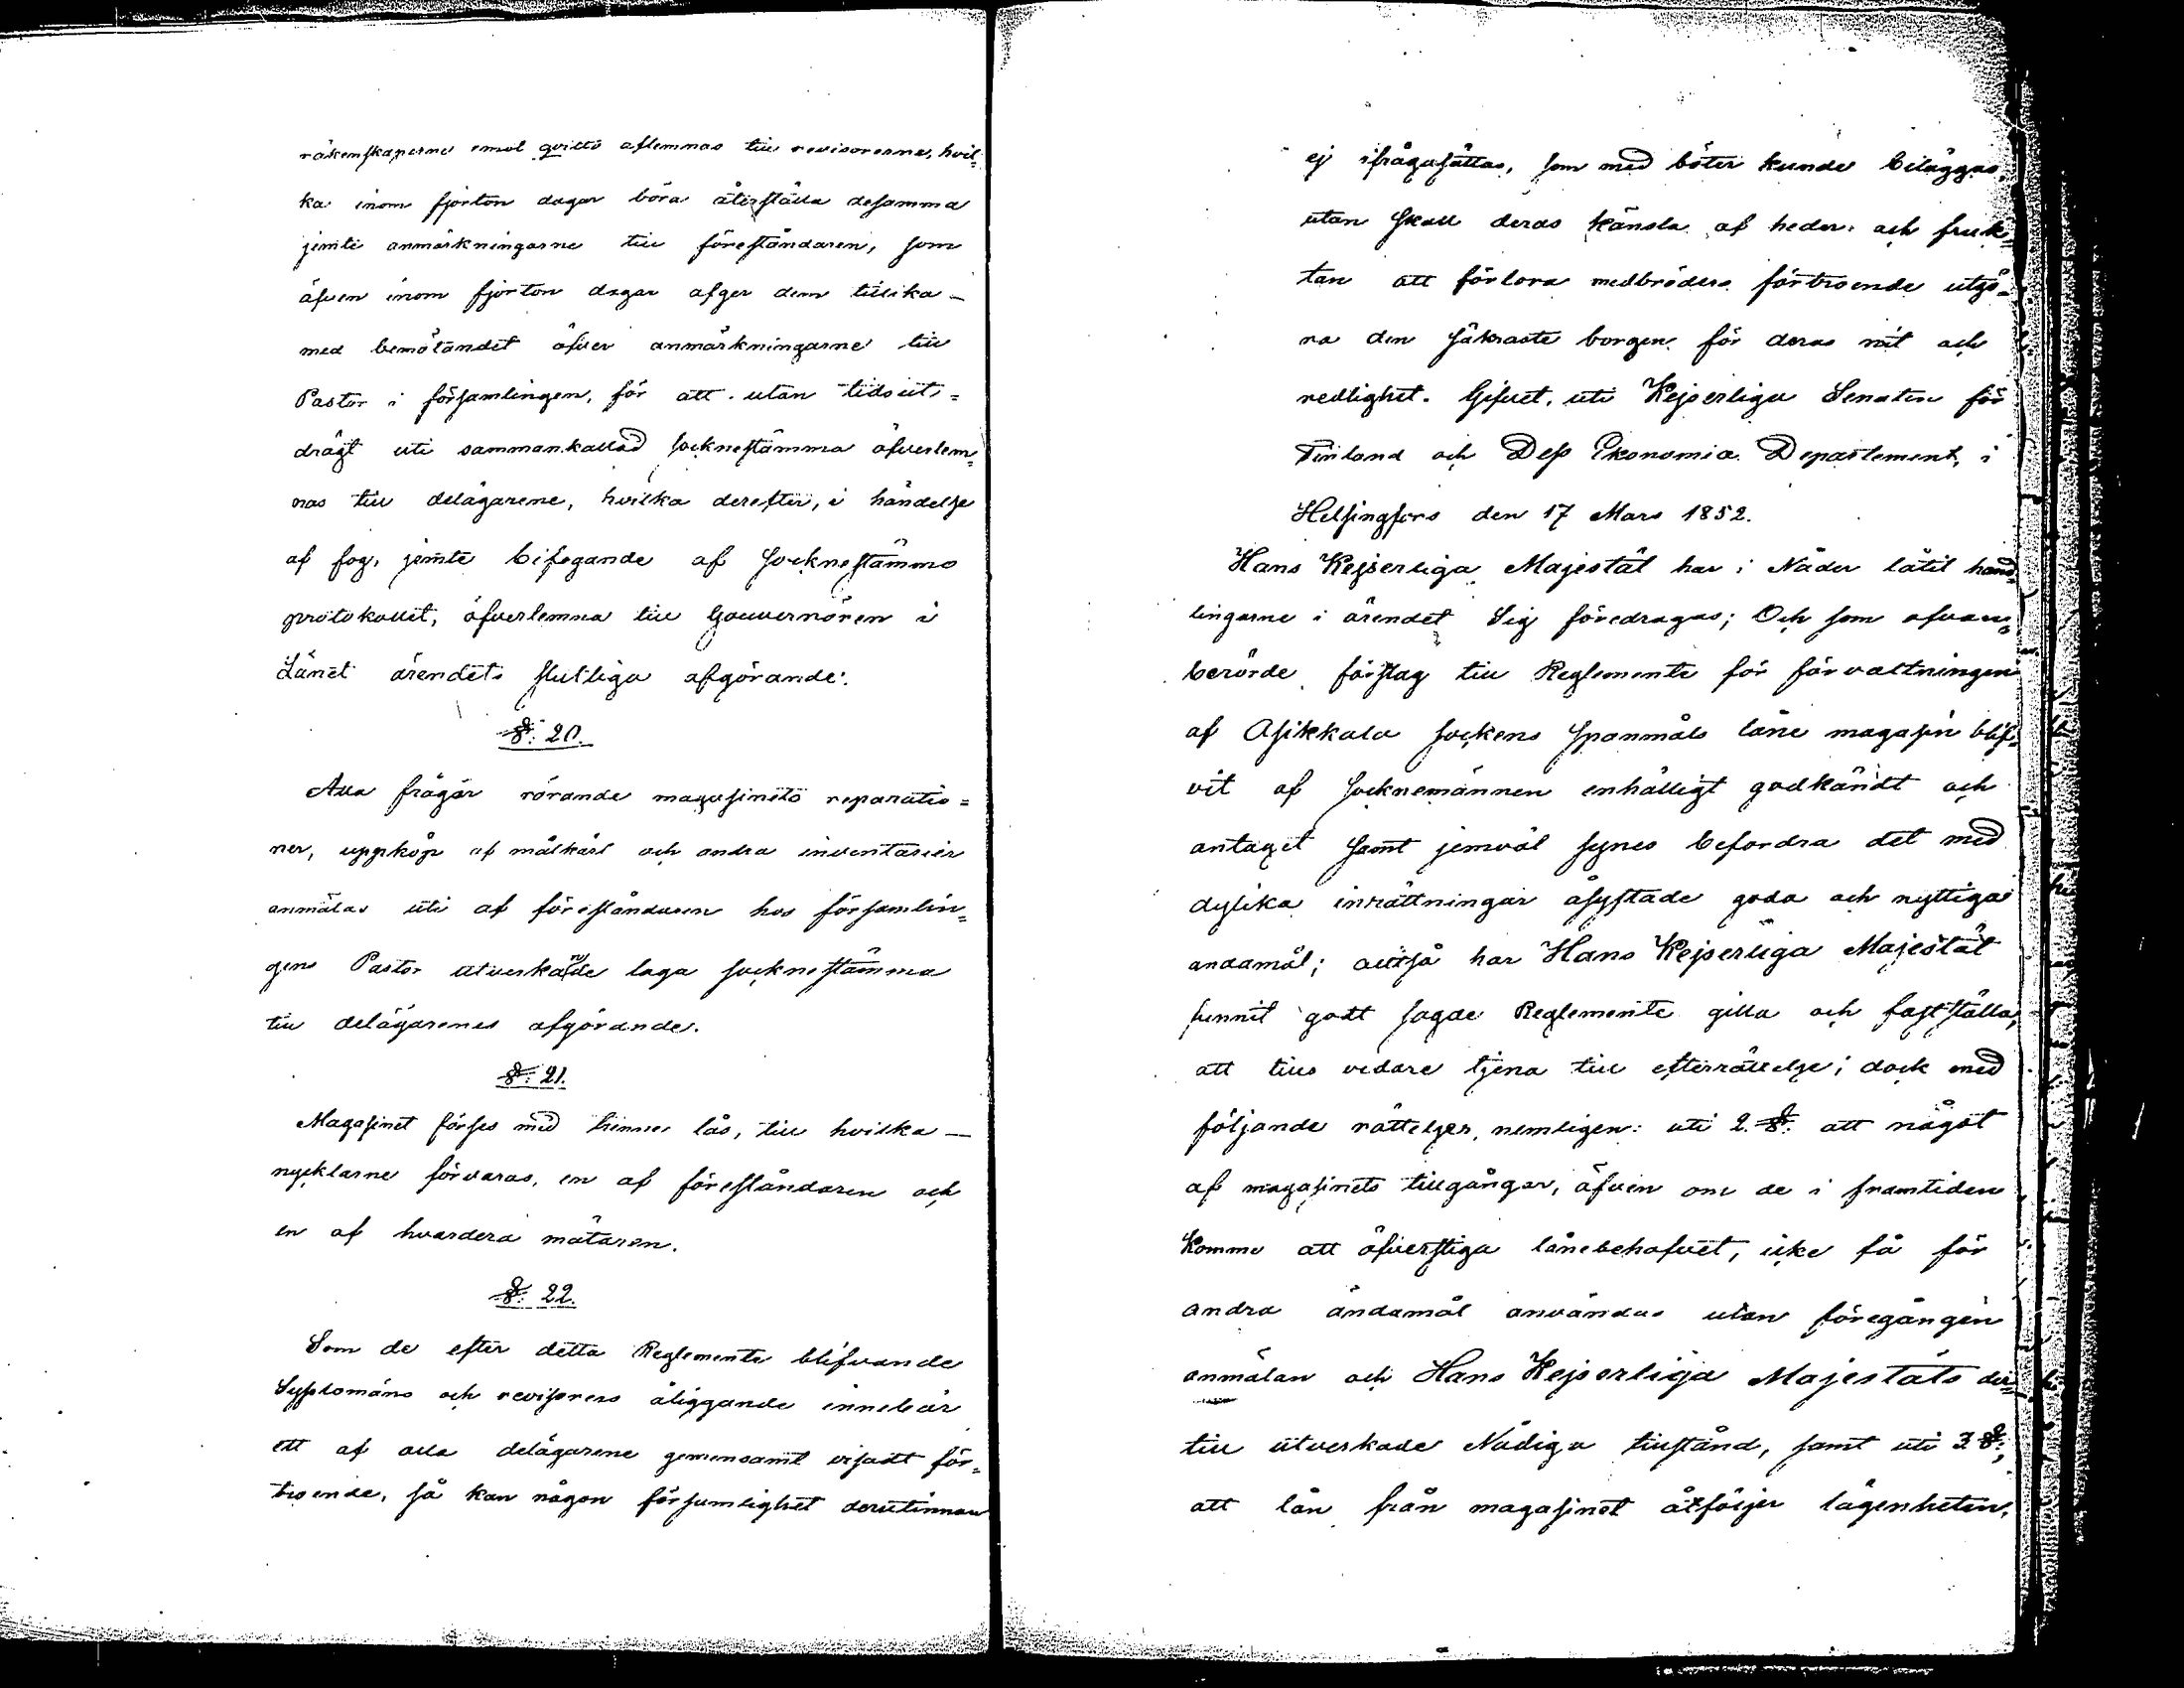 räkenskaperne emot qvitto aflemnas till revisorerna, hvil-
ka inom fjorton dagar böra återställa desamma
jemte anmärkningarne till föreståndaren, som
äfven inom fjorton dagar afger dem tillika
med bemötandet öfver anmärkningarne till
Pastor i församlingen, för att utan tidsut-
drägt uti sammankallad socknestämma öfverlem-
nas till delägarene, hvilka derefter, i händelse
af fog, jemte bifogande af Socknestämmo
protokollet, öfverlemna till Gouvernören i
Länet ärendets slutliga afgörande.
§. 20.
Alla frågor rörande magasinets reparatio-
ner, uppköp af målkärl och andra inventarier
anmälas uti af föreståndaren hos församlin-
gens Pastor utverkande laga socknestämma
till delägarenes afgörande.
§. 21.
Magasinet förses med trenne lås, till hvilka
nycklarne förvaras, en af föreståndaren och
en af hvardera mätaren.
§. 22.
Som de efter detta Reglemente blifvande
Sysslomäns och revisorers åliggande innebär
ett af alla delägarene gemensamt visadt för-
troende, så kan någon försumlighet derutinnan
ej ifrågasättas, som med böter kunde beläggas,
utan skall deras känsla af heder och fruk-
tan att förlora medbröders förtroende utgö-
ra den säkraste borgen för deras nit och
redlighet. Gifvet, uti Kejserliga Senaten för
Finland och Dess Ekonomia Departement, i
Helsingfors den 17 Mars 1852.
Hans Kejserliga Majestät har i Nåder låtit hand-
lingarne i ärendet Sig föredragas; Och som ofvan-
berörde förslag till Reglemente för förvaltningen
af Asikkala sockens spanmåls låne magasin blif-
vit af socknemännen enhälligt godkändt och
antaget samt jemväl synes befordra det med
dylika inrättningar åsyftade goda och nyttiga
andamål; alltså har Hans Kejserliga Majestät
funnit godt sagde Reglemente gilla och fastställa,
att tills vidare tjena till efterrättelse; dock med
följande rättelser, nemligen: uti 2. §. att något
af magasinets tillgångar, äfven om de i framtiden
komme att öfverstiga lånebehofvet, icke få för
andra ändamål användas utan föregången
anmälan och Hans Kejserliga Majestäts der-
till utverkade Nådiga tillstånd, samt uti 3 §;
att lån från magasinet åtföljer lägenheten,